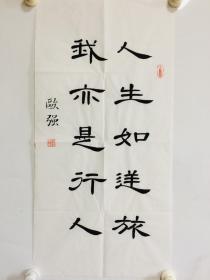 人生如逆旅
我亦是行人
歐强